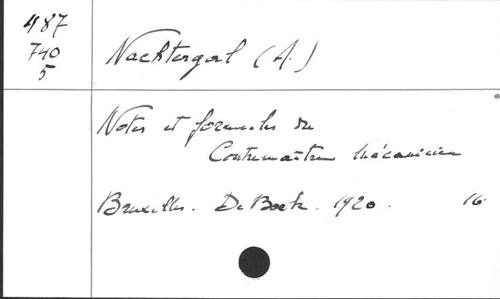 487
740
5
Nachtergal (A.)
Notes et formules du
Contremaître Mécanicien
Bruxelles. De Boeck. 1920. 16